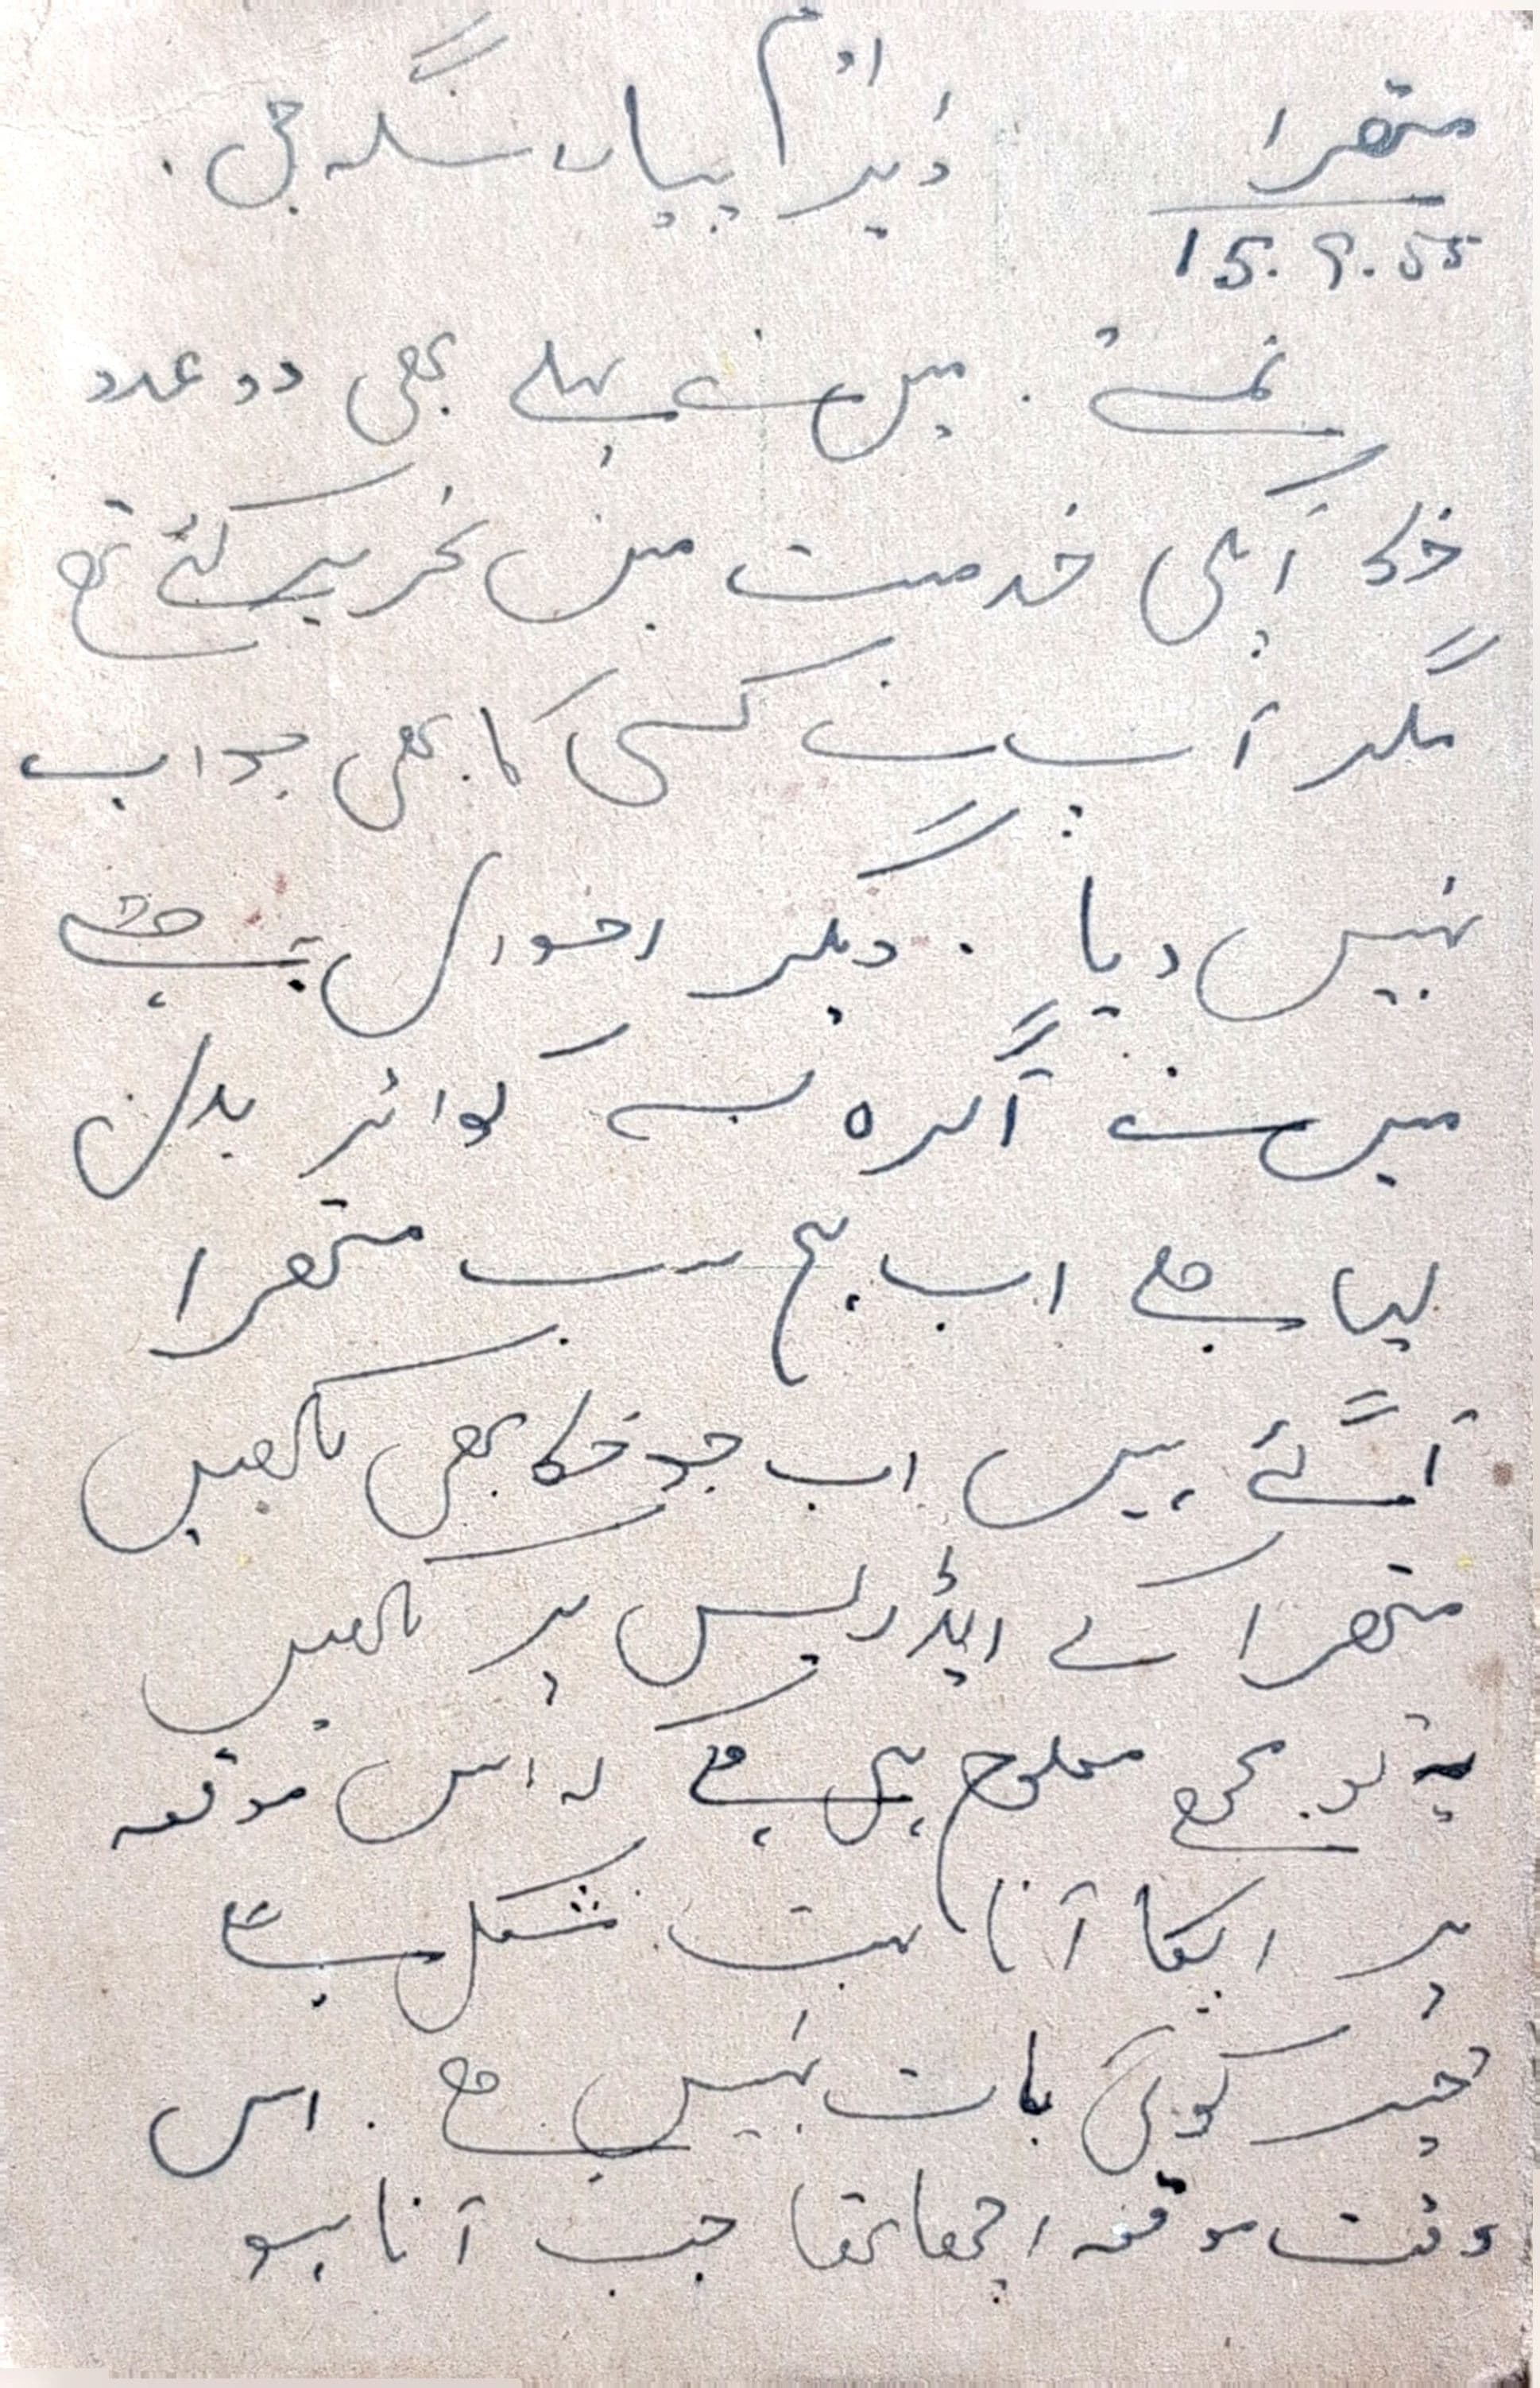 اوم
متھرا
ڈیر پیارے سنگھ جی۔
15.9.55
نمستے۔ میں نے پہلے بھی دو عدد
خط آپکی خدمت میں تحریر کئے تھے
مگر آپ نے کسی کا بھی جواب
نہیں دیا۔ دیگر احوال یہ ہے
میں نے آگرہ سے کواٹر بدل
لیا ہے اب ہم سب متھرا
آ گئے ہیں اب جو خط بھی لکھیں
متھرا کے ایڈریس پر لکھیں
یہ تو مجھے معلوم ہی ہے کہ اس موقعہ
پر آپکا آنا بہت مشکل ہے
خیر کوئی بات نہیں ہے۔ اس
وقت موقعہ اچھا تھا جب آنا ہو